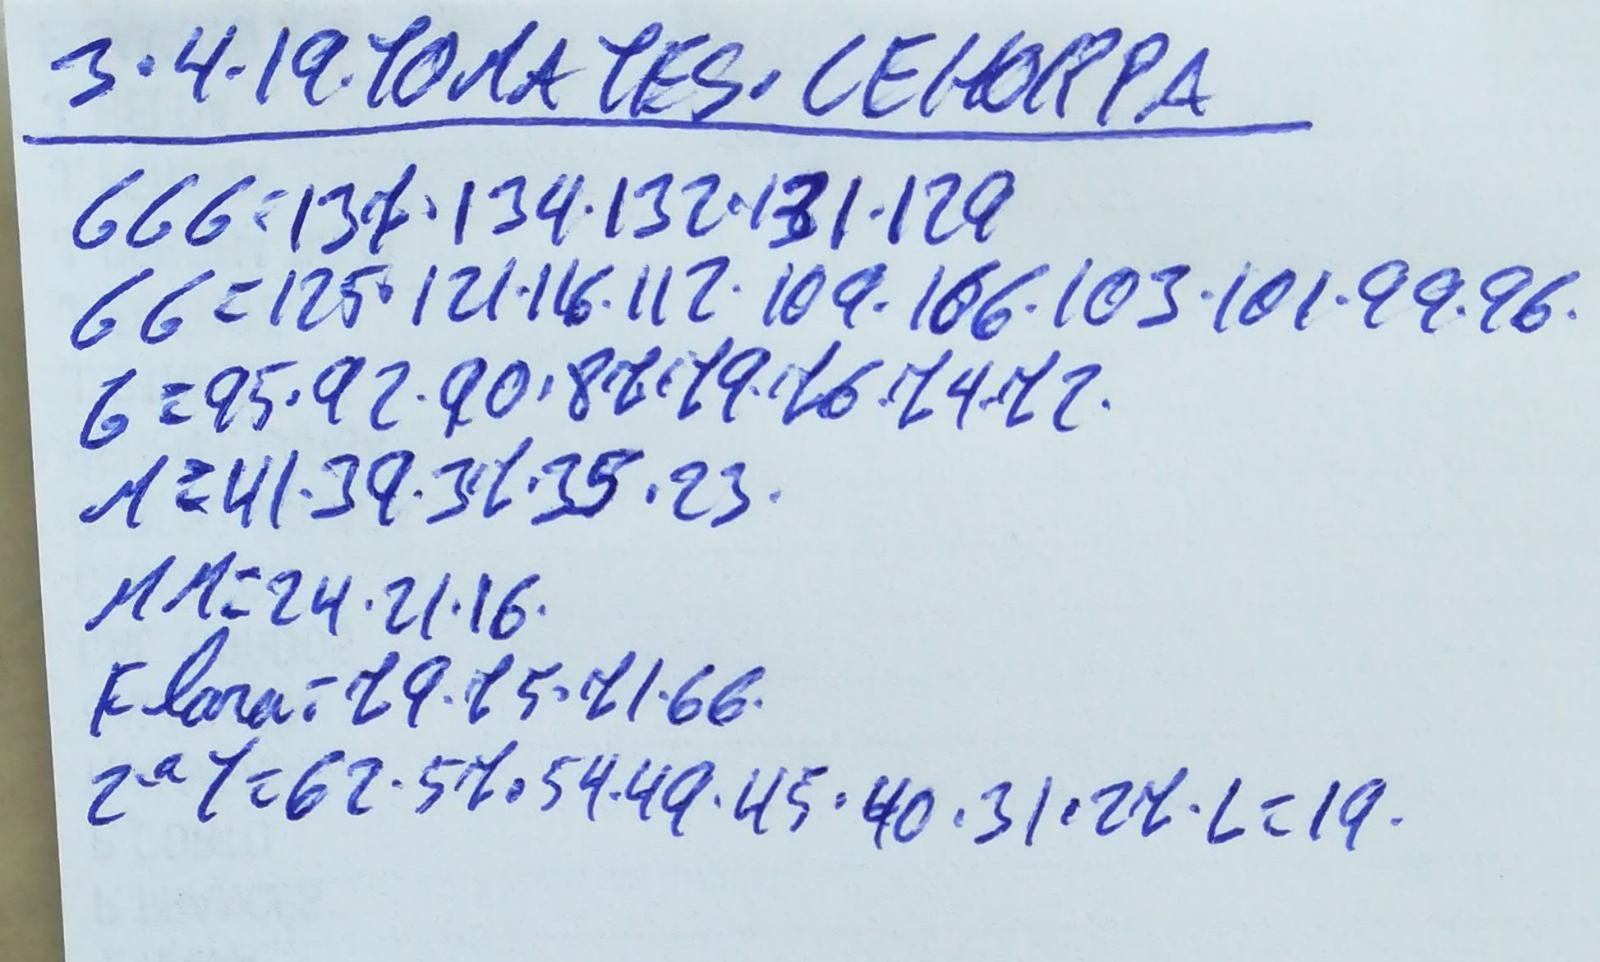 3.4.19.TOMATES. CEHORPA
GGG=137.134.132.131.129
GG=125.121.116.112.109.106.103.101.99.96.
G=95.92.90.87.79.76.74.72.
M=41.39.37.35.23.
MM=24.21.16.
Flora=79.75.71.66.
2ªT=62.57.54.49.45.40.31.27.L=19.